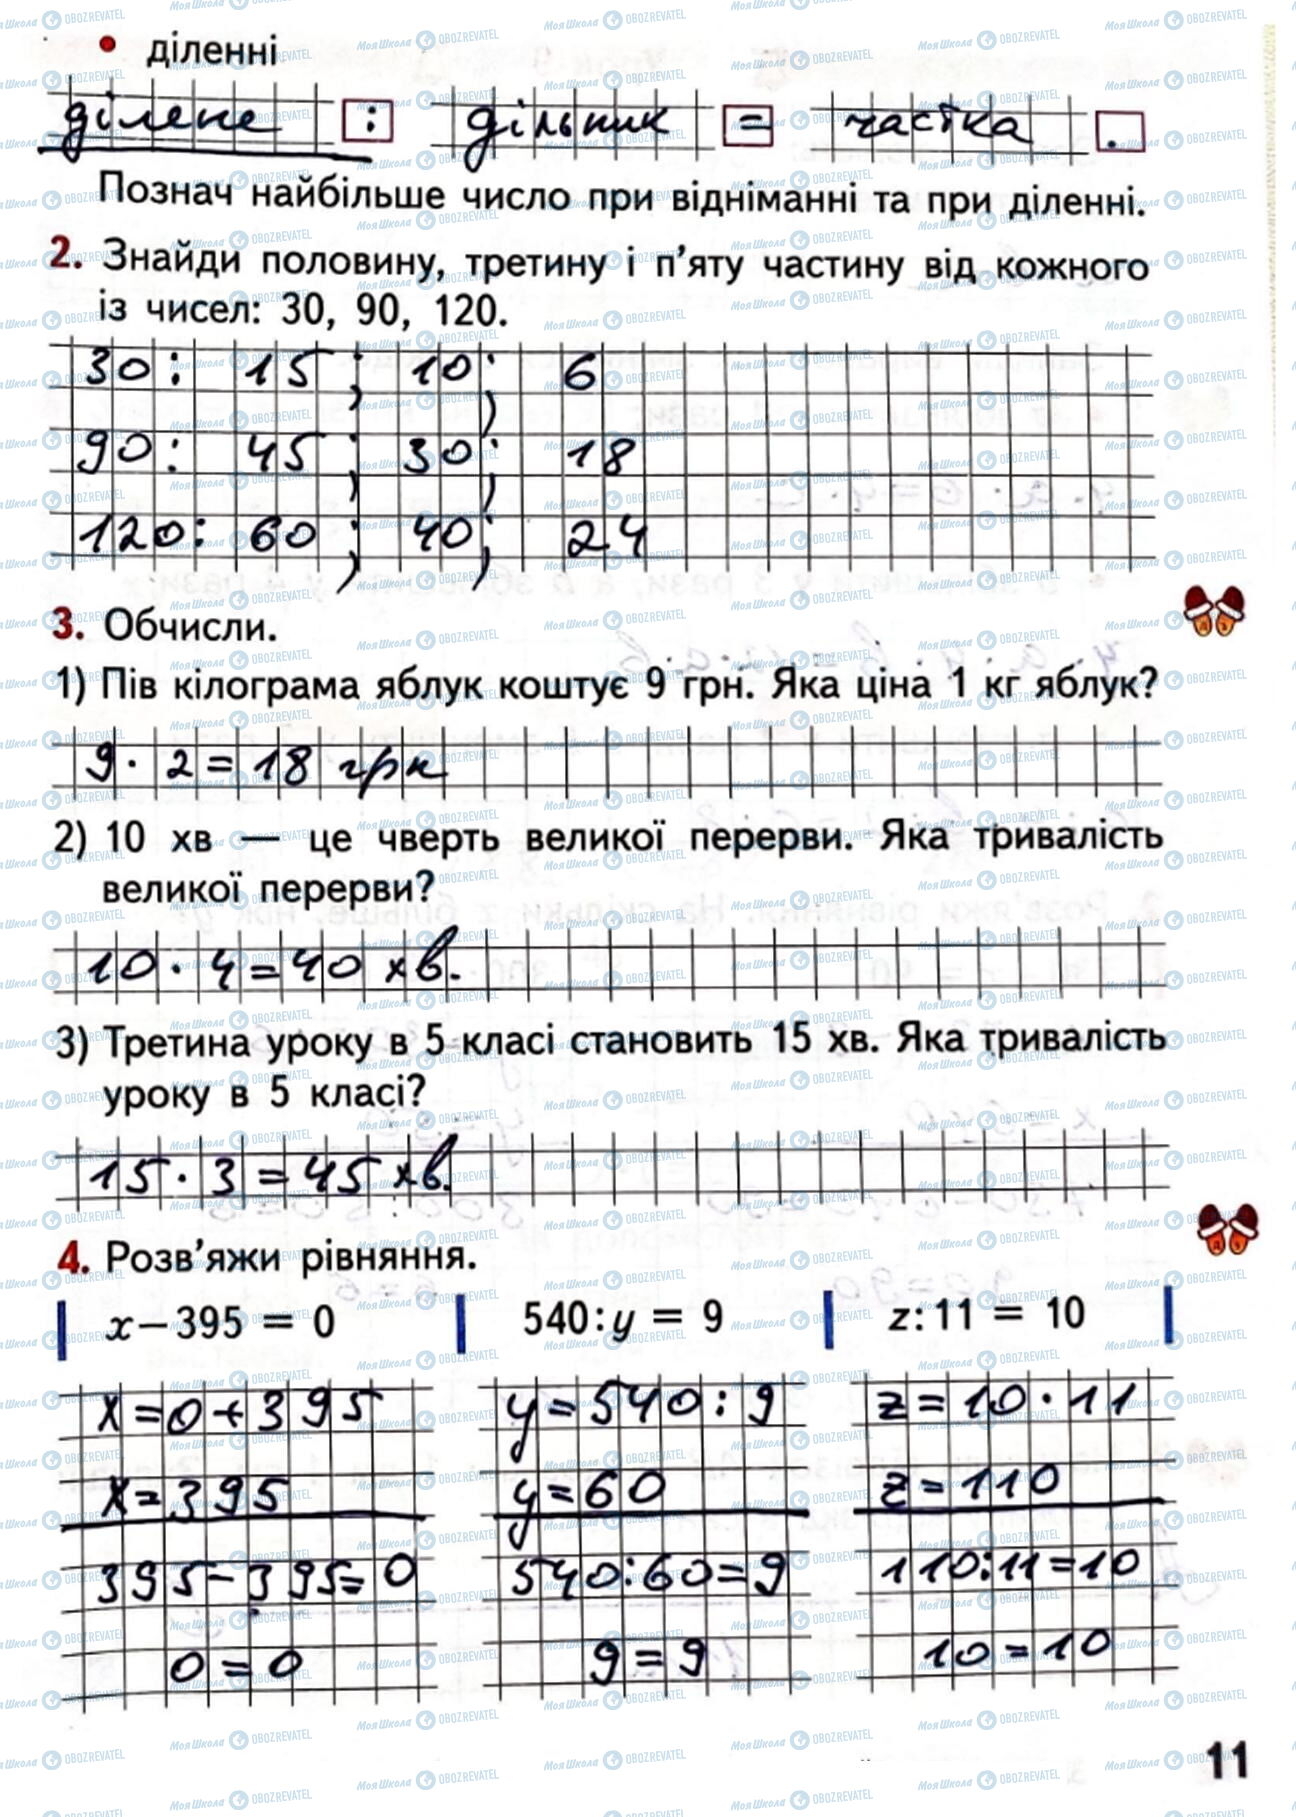 • діленні
ділене : дільник = частка .
Познач найбільше число при відніманні та при діленні.
2. Знайди половину, третину і п'яту частину від кожного
із чисел: 30, 90, 120.
30: 15; 10; 6
90: 45; 30; 18
120: 60; 40; 24
3. Обчисли.
1) Пів кілограма яблук коштує 9 грн. Яка ціна 1 кг яблук?
9 · 2 = 18 грн
2) 10 хв — це чверть великої перерви. Яка тривалість
великої перерви?
10 · 4 = 40 хв.
3) Третина уроку в 5 класі становить 15 хв. Яка тривалість
уроку в 5 класі?
15 · 3 = 45 хв.
4. Розв'яжи рівняння.
x – 395 = 0 540 : y = 9 z : 11 = 10
x = 0 + 395 y = 540 : 9 z = 10 · 11
x = 395 y = 60 z = 110
395 – 395 = 0 540 : 60 = 9 110 : 11 = 10
0 = 0 9 = 9 10 = 10
11
МояШкола OBOZREVATEL